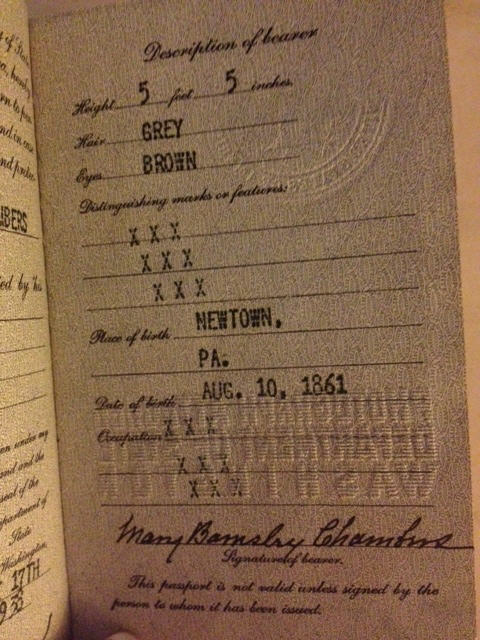 Description of bearer
Height 5 feet 5 inches.
Hair GREY
Eyes BROWN
Distinguishing marks or features:
X X X
X X X
X X X
Place of birth NEWTOWN,
PA.
Date of birth AUG. 10, 1861
Occupation X X X
X X X
X X X
Mary Barnsley Chambers
Signature of bearer.
This passport is not valid unless signed by the
person to whom it has been issued.
and in case
BERS
ed by his
under my
and and the
seal of the
partment of
State
Washington
17TH